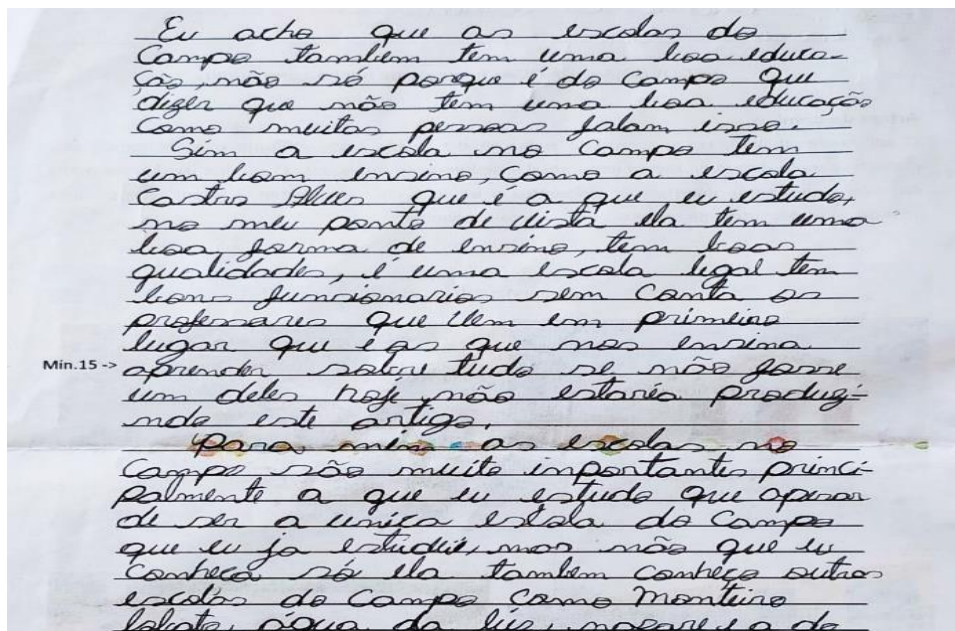 Eu acho que as escolas do
Campo tambem tem uma boa educa-
ção, não só porque é do Campo que
dizer que não tem uma boa educação
Como muitas pessoas falam isso.
Sim a escola no Campo tem
um bom ensino, Como a escola
Castro Alves que é a que eu estudo,
no meu ponto de vista ela tem uma
boa forma de ensino, tem boas
qualidades, é uma escola legal tem
bons funsionarios sem Conta os
professores que vem em primeiro
lugar que é os que nos ensina
Min.15 -> aprender sobre tudo se não fosse
um deles hoje não estaria produzi-
ndo este artigo.
Para mim as escolas no
Campo são muito importantes princi-
palmente a que eu estudo que apesar
de ser a unica escola do Campo
que eu ja estudei, mas não que eu
Conheça só ela tambem conheço outras
escolas do Campo Como Monteiro
lobato, água da lús,